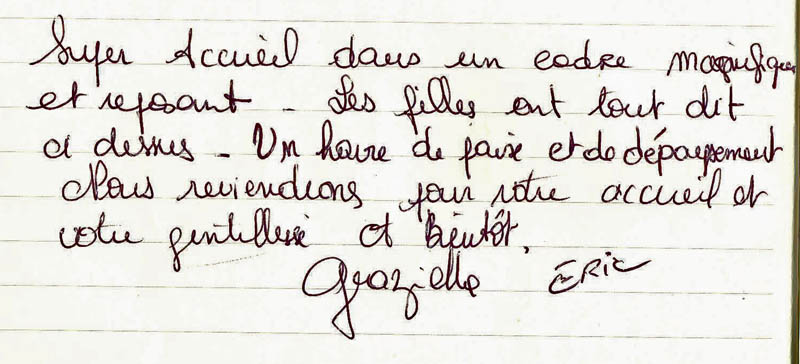 Super Accueil dans un cadre magnifique
et reposant - Les filles ont tout dit
ci dessus - Un havre de paix et de dépaysement
Nous reviendrons pour votre accueil et
votre gentillesse A bientôt.
Grazielle ERIC